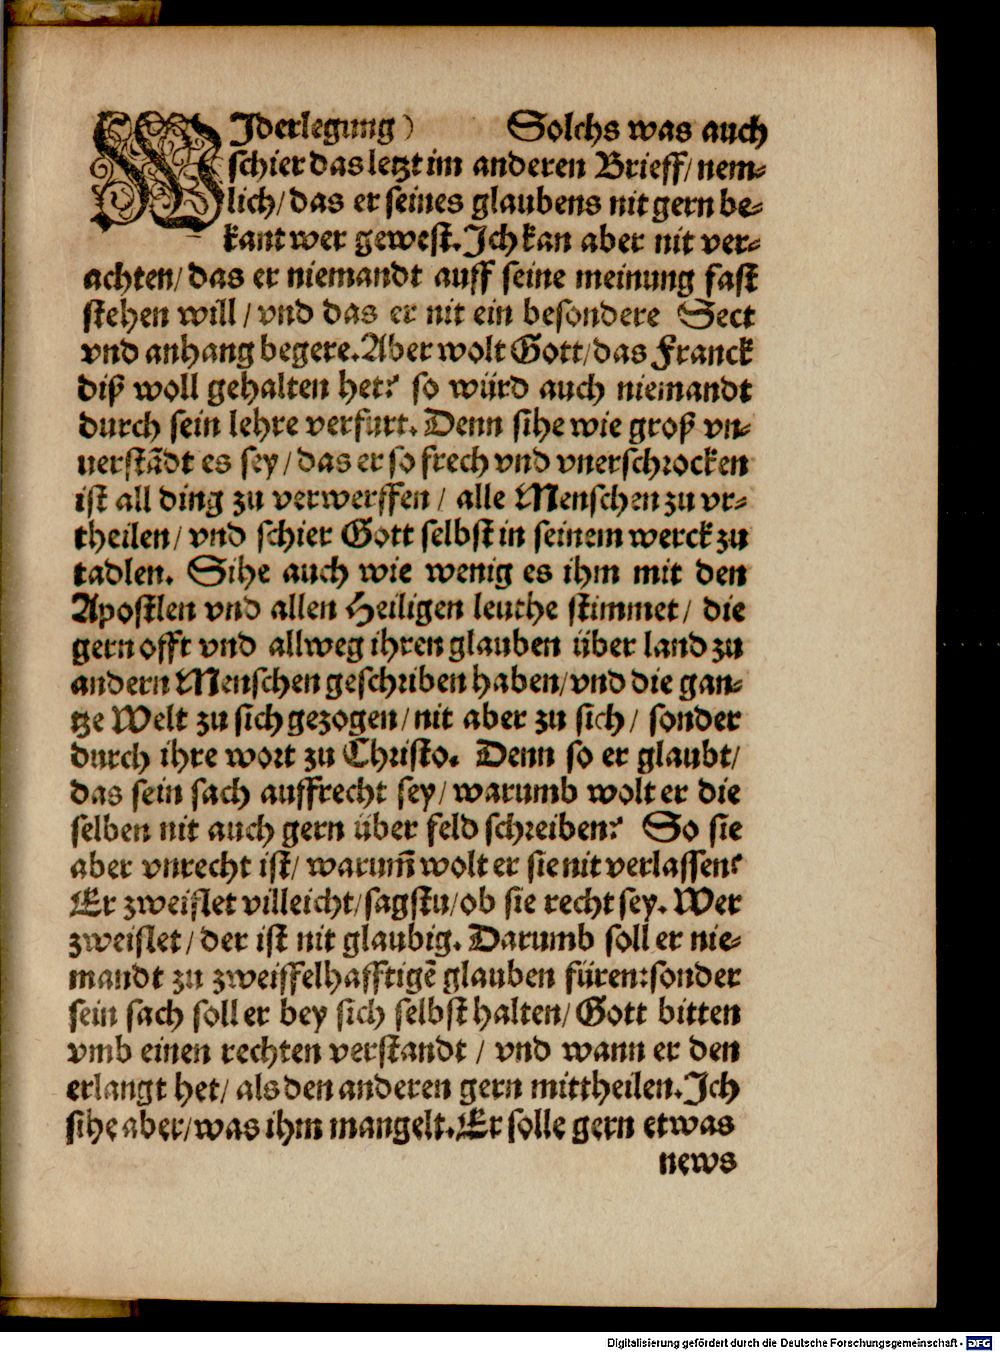 WJderlegung) Solchs was auch
schier das letzt im anderen Brieff/ nem⸗
lich/ das er seines glaubens nit gern be⸗
kant wer gewest. Jch kan aber nit ver⸗
achten/ das er niemandt auff seine meinung fast
stehen will / vnd das er nit ein besondere Sect
vnd anhang begere. Aber wolt Gott/ das Franck
diß woll gehalten het? so würd auch niemandt
durch sein lehre verfurt. Denn sihe wie groß vn⸗
uerstãdt es sey / das er so frech vnd vnerschrocken
ist all ding zu verwerffen / alle Menschen zu vr⸗
theilen/ vnd schier Gott selbst in seinem werck zu
tadlen. Sihe auch wie wenig es ihm mit den
Apostlen vnd allen Heiligen leuthe stimmet/ die
gern offt vnd allweg ihren glauben über land zu
andern Menschen geschriben haben/ vnd die gan⸗
tze Welt zu sich gezogen/ nit aber zu sich/ sonder
durch ihre wort zu Christo. Denn so er glaubt/
das sein sach auffrecht sey/ warumb wolt er die
selben nit auch gern über feld schreiben? So sie
aber vnrecht ist/ warum̃ wolt er sie nit verlassen?
Er zweiflet villeicht/ sagstu/ ob sie recht sey. Wer
zweislet/ der ist nit glaubig. Darumb soll er nie⸗
mandt zu zweiffelhafftigẽ glauben füren: sonder
sein sach soll er bey sich selbst halten/ Gott bitten
vmb einen rechten verstandt / vnd wann er den
erlangt het/ als den anderen gern mittheilen. Jch
sihe aber/ was ihm mangelt. Er solle gern etwas
news
Digitalisierung gefördert durch die Deutsche Forschungsgemeinschaft - DFG